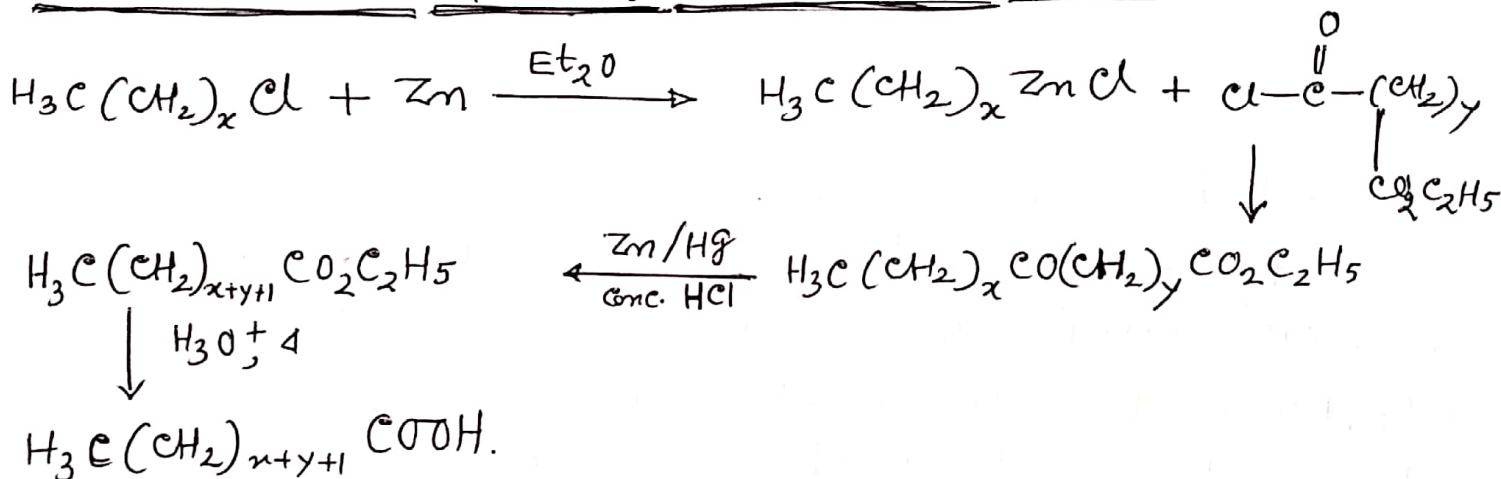 H₃C(CH₂)ₓCl + Zn —Et₂O→ H₃C(CH₂)ₓZnCl + Cl–C(=O)–(CH₂)ᵧ–CO₂C₂H₅
↓
H₃C(CH₂)ₓ₊ᵧ₊₁CO₂C₂H₅ ←Zn/Hg, Conc. HCl— H₃C(CH₂)ₓCO(CH₂)ᵧCO₂C₂H₅
↓ H₃O⁺, Δ
H₃C(CH₂)ₓ₊ᵧ₊₁COOH.